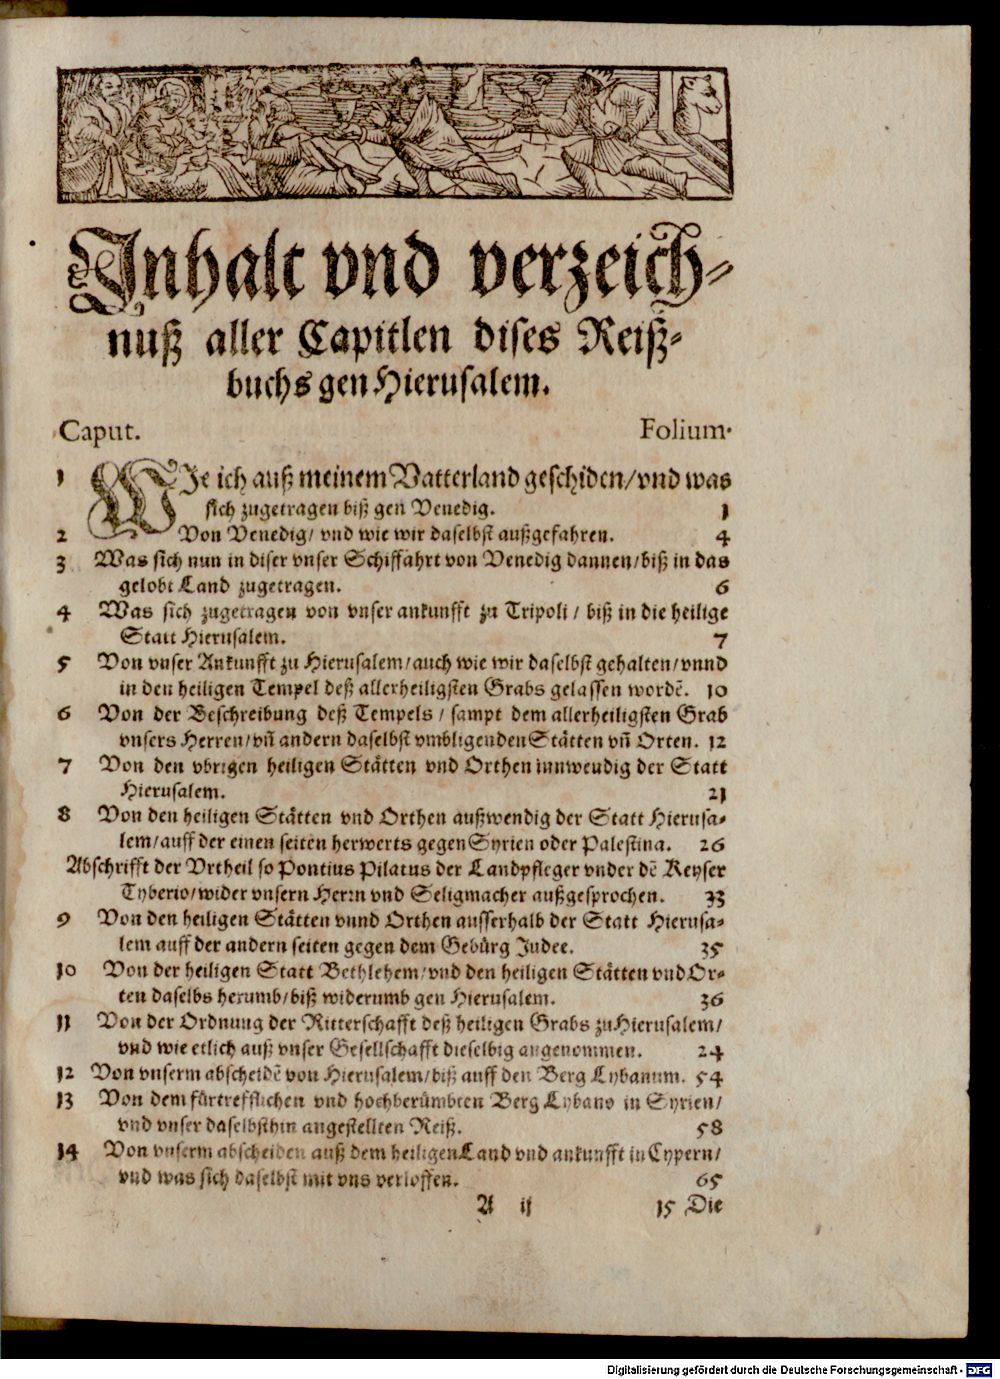 Inhalt vnd verzeich-
nuß aller Capitlen dises Reiß-
buchs gen Hierusalem.
Caput. Folium.
1 WIe ich auß meinem Vatterland geschiden/vnd was
sich zugetragen biß gen Venedig. 1
2 Von Venedig/ vnd wie wir daselbst außgefahren. 4
3 Was sich nun in diser vnser Schiffahrt von Venedig dannen/biß in das
gelobt Land zugetragen. 6
4 Was sich zugetragen von vnser ankunfft zu Tripoli / biß in die heilige
Statt Hierusalem. 7
5 Von vnser Ankunfft zu Hierusalem/auch wie wir daselbst gehalten/vnnd
in den heiligen Tempel deß allerheiligsten Grabs gelassen wordẽ. 10
6 Von der Beschreibung deß Tempels / sampt dem allerheiligsten Grab
vnsers Herren/vñ andern daselbst vmbligenden Stätten vñ Orten. 12
7 Von den vbrigen heiligen Stätten vnd Orthen innwendig der Statt
Hierusalem. 21
8 Von den heiligen Stätten vnd Orthen außwendig der Statt Hierusa-
lem/auff der einen seiten herwerts gegen Syrien oder Palestina. 26
Abschrifft der Vrtheil so Pontius Pilatus der Landpfleger vnder dẽ Keyser
Tyberio/wider vnsern Herrn vnd Seligmacher außgesprochen. 33
9 Von den heiligen Stätten vnnd Orthen ausserhalb der Statt Hierusa-
lem auff der andern seiten gegen dem Gebürg Judee. 35
10 Von der heiligen Statt Bethlehem/vnd den heiligen Stätten vnd Or-
ten daselbs herumb/biß widerumb gen Hierusalem. 36
11 Von der Ordnung der Ritterschafft deß heiligen Grabs zu Hierusalem/
vnd wie etlich auß vnser Gesellschafft dieselbig angenommen. 24
12 Von vnserm abscheidẽ von Hierusalem/biß auff den Berg Lybanum. 54
13 Von dem fürtrefflichen vnd hochberümbten Berg Lybano in Syrien/
vnd vnser daselbsthin angestellten Reiß. 58
14 Von vnserm abscheiden auß dem heiligen Land vnd ankunfft in Cypern/
vnd was sich daselbst mit vns verloffen. 65
A ij 15 Die
Digitalisierung gefördert durch die Deutsche Forschungsgemeinschaft - DFG